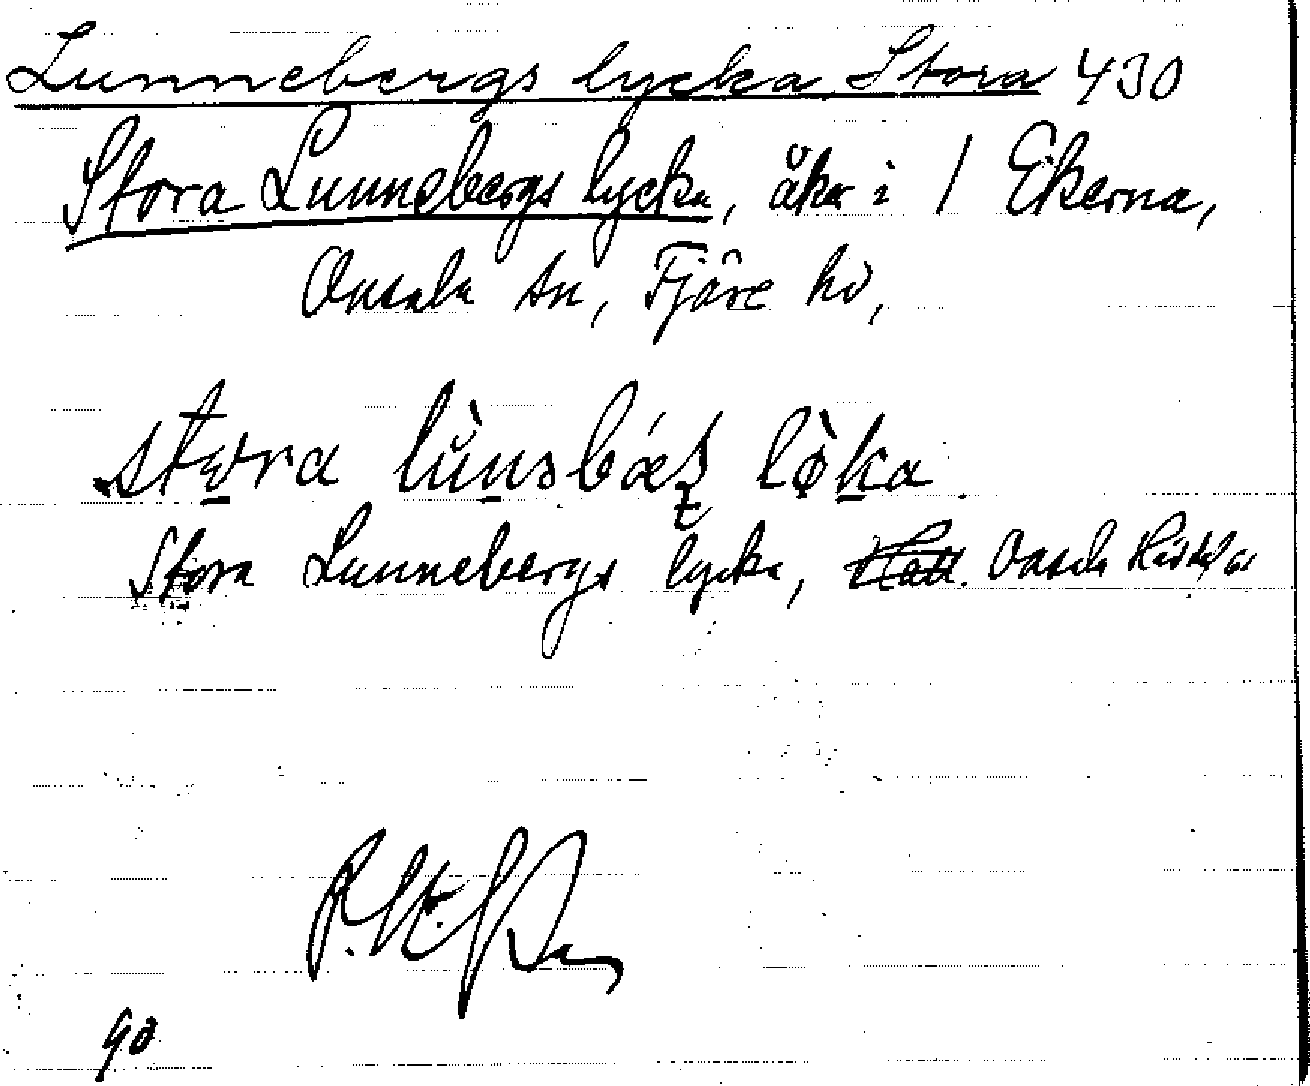 Lunnebergs lycka Stora 430
Stora Lunnebergs lycka, åker i / Ekerna,
Onsala sn, Fjäre hd,
stora lùnəbæʀʂ lø̀ka
Stora Lunnebergs lycka, Onsala
90